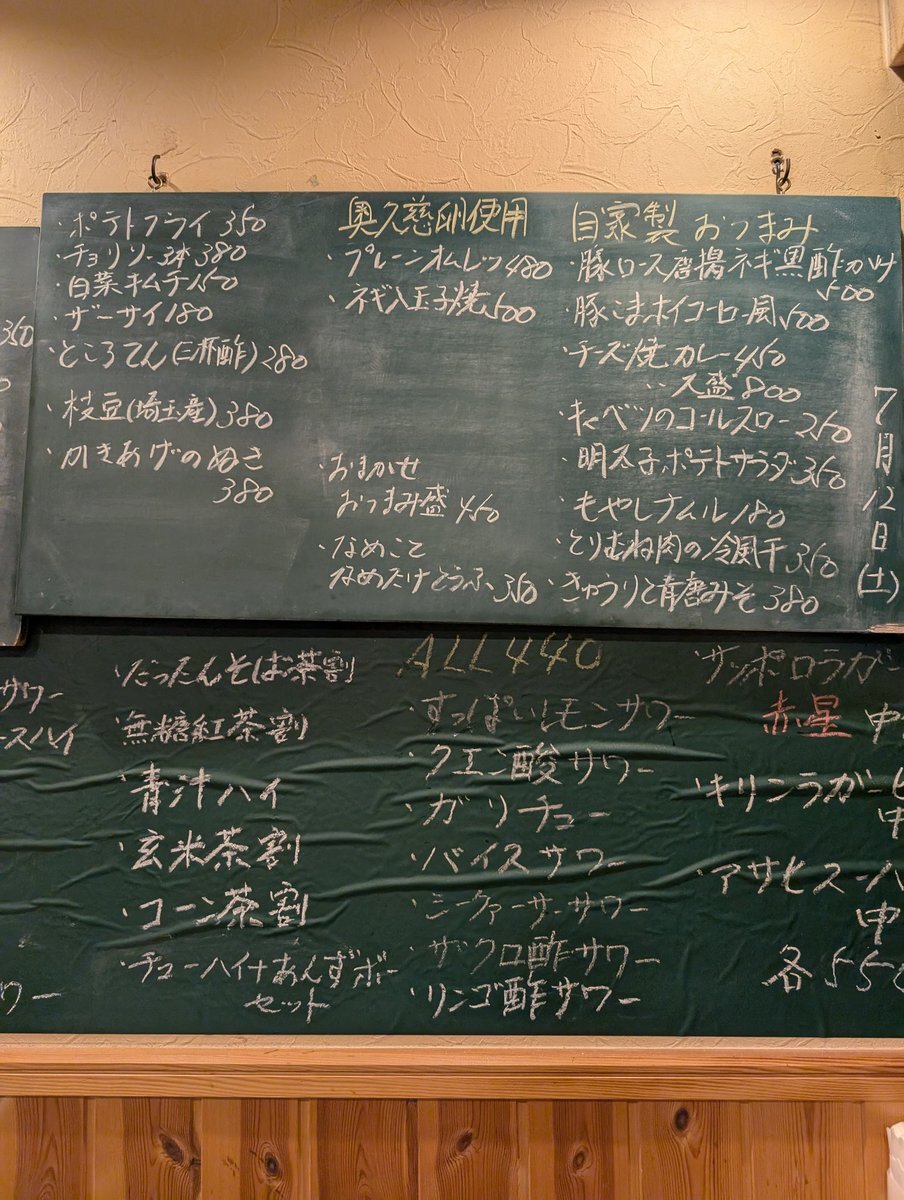 ・ポテトフライ 350
・チョリソー3本 380
・白菜キムチ 150
・ザーサイ 180
・ところてん(三杯酢) 280
・枝豆(埼玉産) 380
・かきあげのぬき
380
奥久慈卵使用
・プレーンオムレツ 480
・ネギ入玉子焼 500
・おまかせ
おつまみ盛 450
・なめこと
なめたけとうふ 350
自家製おつまみ
・豚ロース唐揚ネギ黒酢がけ
500
・豚こまホイコーロー風 500
・チーズ焼カレー 450
〃 大盛 800
・キャベツのコールスロー 250
・明太子ポテトサラダ 350
・もやしナムル 180
・とりむね肉の冷風干 350
・きゅうりと青唐みそ 380
7月12日(土)
350
サワー
ースハイ
ワー
・だったんそば茶割
・無糖紅茶割
・青汁ハイ
・玄米茶割
・コーン茶割
・チューハイ+あんずボー
セット
ALL 440
・すっぱいレモンサワー
・クエン酸サワー
・ガリチュー
・バイスサワー
・シークァーサーサワー
・ザクロ酢サワー
・リンゴ酢サワー
・サッポロラガー
赤星 中
・キリンラガービ
中
・アサヒスーパ
中
各550